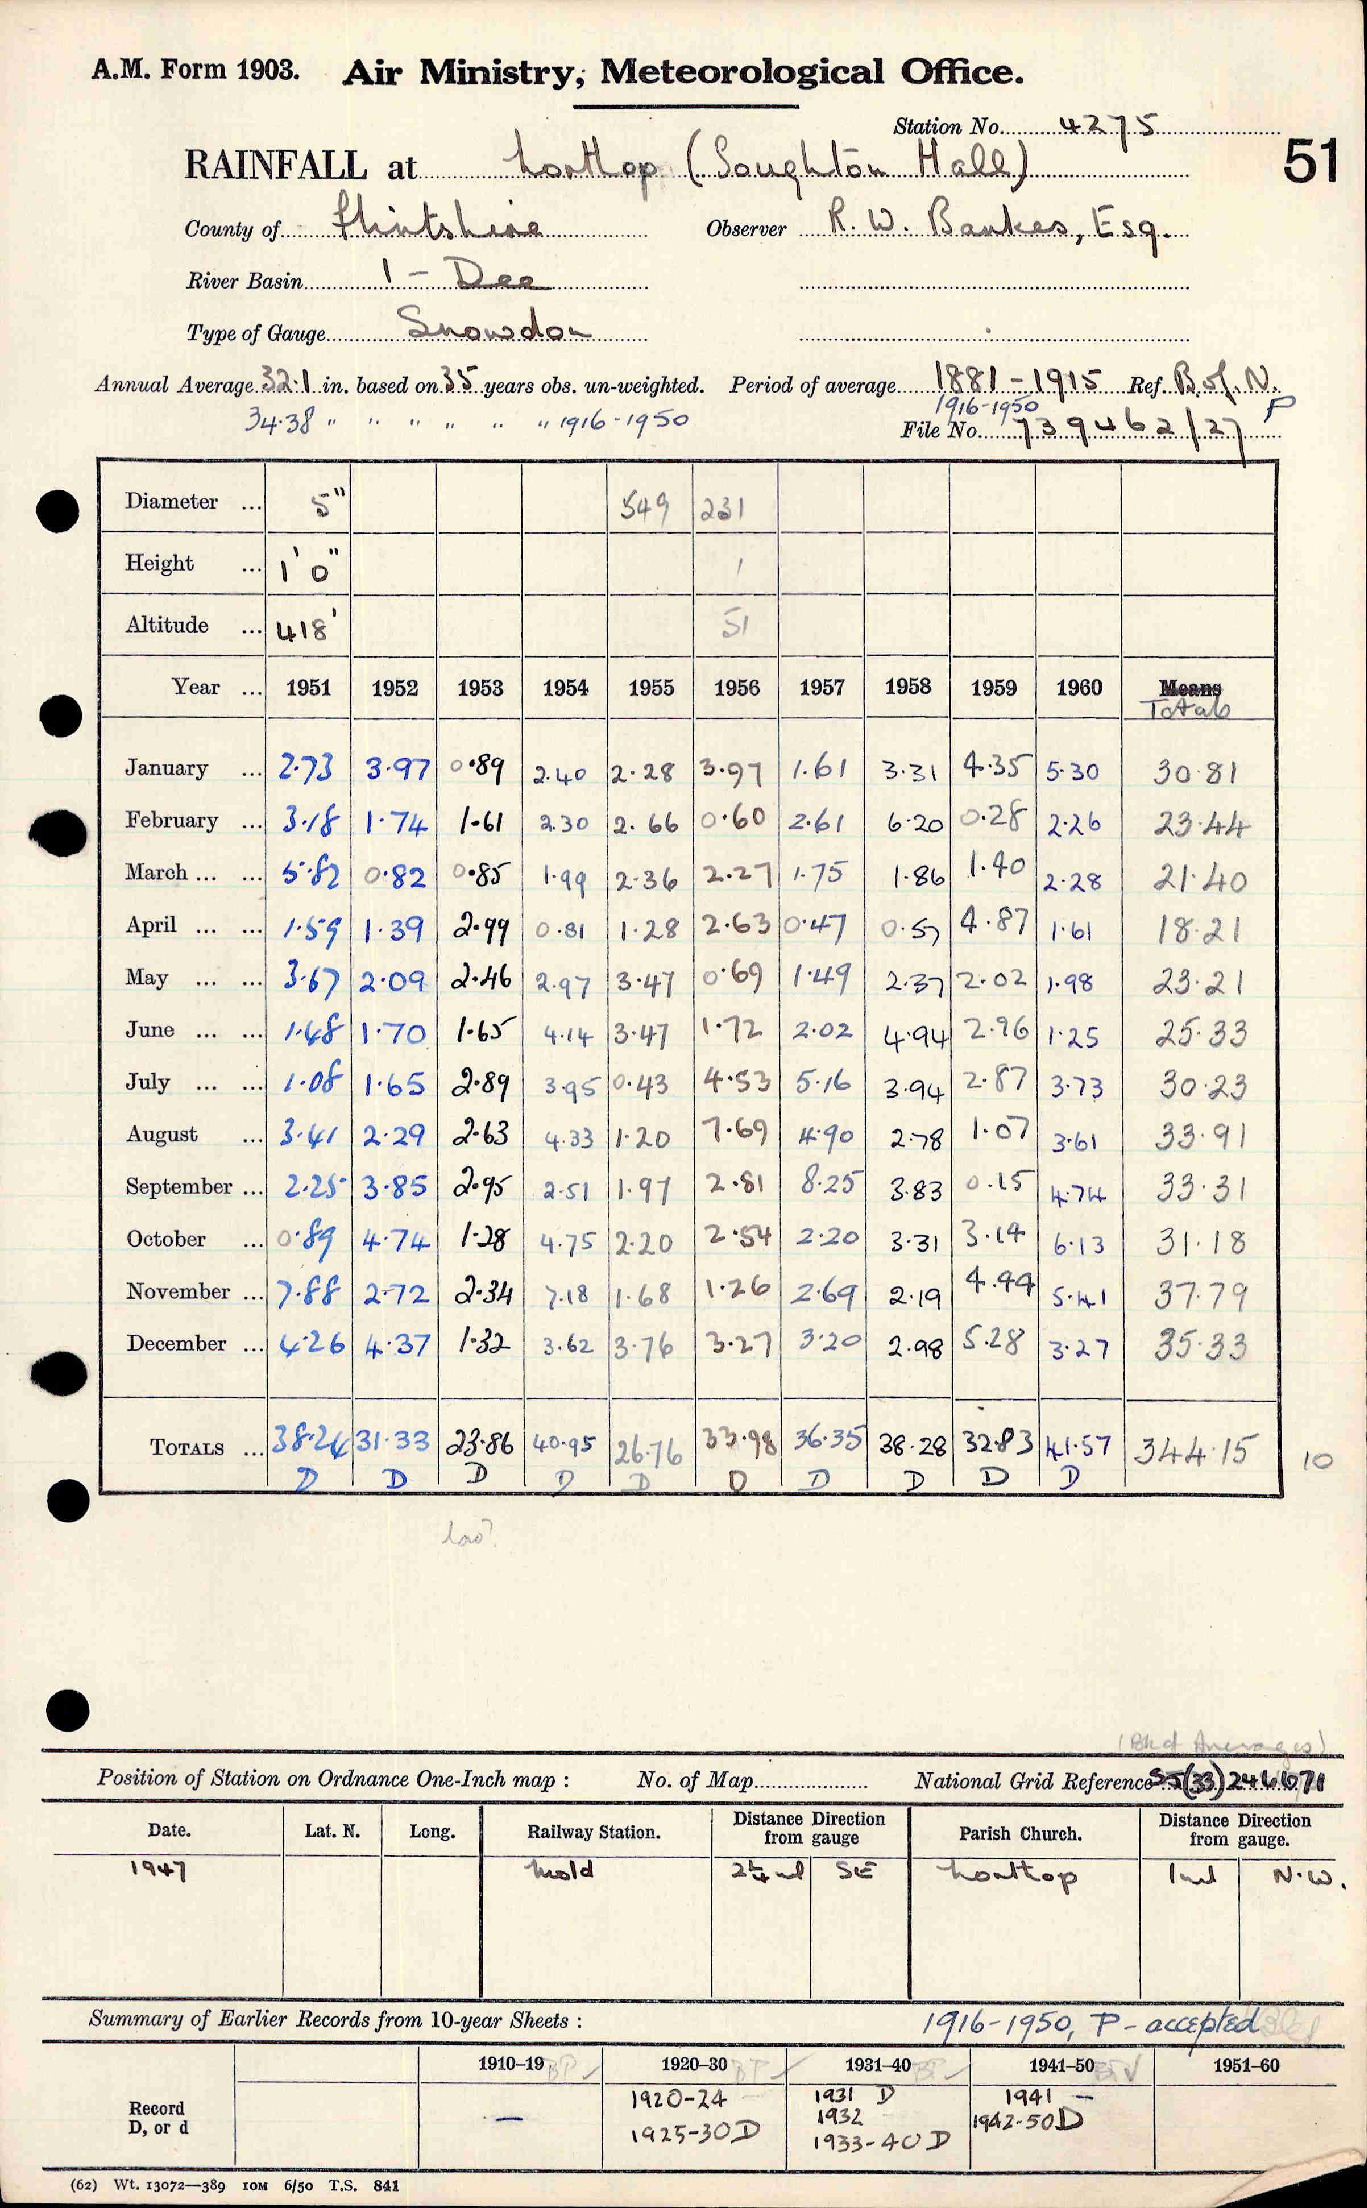 A.M. Form 1903. Air Ministry, Meteorological Office.
Station No. 4275
51
RAINFALL at Northop (Soughton Hall)
County of Flintshire Observer R. W. Bankes, Esq.
River Basin 1 - Dee
Type of Gauge Snowdon
Annual Average 32.1 in. based on 35 years obs. un-weighted. Period of average 1881-1915 Ref. B. of N.
34.38 " " " " " " 1916-1950 1916-1950 P
File No. 739462/27
Diameter ... 5" 549 231
Height ... 1' 0" 1
Altitude ... 418' 51
Year ... 1951 1952 1953 1954 1955 1956 1957 1958 1959 1960 Means
Totals
January ... 2.73 3.97 0.89 2.40 2.28 3.97 1.61 3.31 4.35 5.30 30.81
February ... 3.18 1.74 1.61 2.30 2.66 0.60 2.61 6.20 0.28 2.26 23.44
March ... ... 5.82 0.82 0.85 1.99 2.36 2.27 1.75 1.86 1.40 2.28 21.40
April ... ... 1.59 1.39 2.99 0.81 1.28 2.63 0.47 0.57 4.87 1.61 18.21
May ... ... 3.67 2.09 2.46 2.97 3.47 0.69 1.49 2.37 2.02 1.98 23.21
June ... ... 1.48 1.70 1.65 4.14 3.47 1.72 2.02 4.94 2.96 1.25 25.33
July ... ... 1.08 1.65 2.89 3.95 0.43 4.53 5.16 3.94 2.87 3.73 30.23
August ... 3.41 2.29 2.63 4.33 1.20 7.69 4.90 2.78 1.07 3.61 33.91
September ... 2.25 3.85 2.95 2.51 1.97 2.81 8.25 3.83 0.15 4.74 33.31
October ... 0.89 4.74 1.28 4.75 2.20 2.54 2.20 3.31 3.14 6.13 31.18
November ... 7.88 2.72 2.34 7.18 1.68 1.26 2.69 2.19 4.44 5.41 37.79
December ... 4.26 4.37 1.32 3.62 3.76 3.27 3.20 2.98 5.28 3.27 35.33
TOTALS ... 38.24 31.33 23.86 40.95 26.76 33.98 36.35 38.28 32.83 41.57 344.15 10
D D D D D D D D D D
low?
(Bkd Averages)
Position of Station on Ordnance One-Inch map : No. of Map National Grid Reference SJ(33)246671
Date. Lat. N. Long. Railway Station. Distance Direction from gauge Parish Church. Distance Direction from gauge.
1947 Mold 2¼ml SE Northop 1ml N.W.
Summary of Earlier Records from 10-year Sheets : 1916-1950, P - accepted
1910–19 BP 1920–30 BP 1931–40 BP 1941–50 1951–60
Record D, or d
— 1920-24 — 1931 D 1941 —
1932
1925-30 D 1933-40 D 1942-50 D
(62) Wt. 13072—389 10M 6/50 T.S. 841